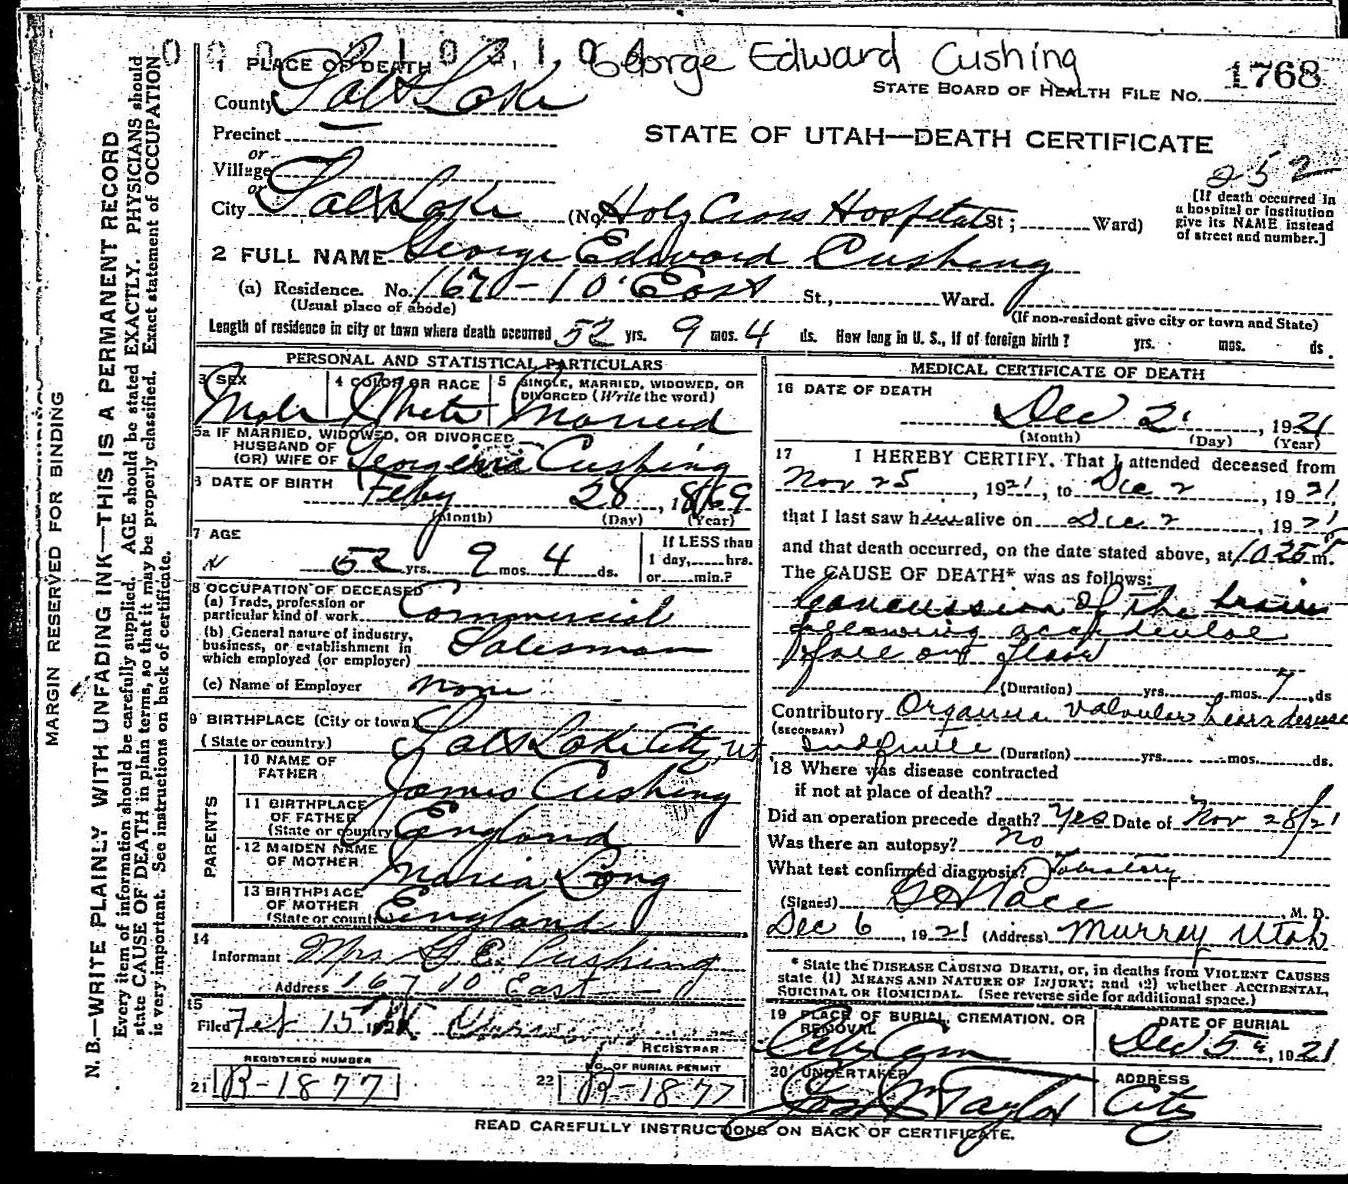 George Edward Cushing
1768
STATE BOARD OF HEALTH FILE NO.
1 PLACE OF DEATH
County Salt Lake
Precinct
or
Village
or
City Salt Lake (No. Holy Cross Hospital St; Ward)
STATE OF UTAH—DEATH CERTIFICATE
252
[If death occurred in
a hospital or institution
give its NAME instead
of street and number.]
2 FULL NAME George Edward Cushing
(a) Residence. No. 167 - 10 East St., Ward.
(Usual place of abode)
(If non-resident give city or town and State)
Length of residence in city or town where death occurred 52 yrs. 9 mos. 4 ds. How long in U. S., if of foreign birth? yrs. mos. ds.
PERSONAL AND STATISTICAL PARTICULARS
3 SEX
Male
4 COLOR OR RACE
White
5 SINGLE, MARRIED, WIDOWED, OR
DIVORCED (Write the word)
Married
5a IF MARRIED, WIDOWED, OR DIVORCED
HUSBAND OF
(OR) WIFE OF Georgina Cushing
6 DATE OF BIRTH Feby 28, 1869
(Month) (Day) (Year)
7 AGE
52 yrs. 9 mos. 4 ds.
If LESS than
1 day, hrs.
or min.?
8 OCCUPATION OF DECEASED
(a) Trade, profession or
particular kind of work Commercial
(b) General nature of industry,
business, or establishment in
which employed (or employer) Salesman
(c) Name of Employer none
9 BIRTHPLACE (City or town)
(State or country) Salt Lake City, Ut
PARENTS
10 NAME OF
FATHER James Cushing
11 BIRTHPLACE
OF FATHER
(State or country) England
12 MAIDEN NAME
OF MOTHER Maria Long
13 BIRTHPLACE
OF MOTHER
(State or country) England
14
Informant Mrs G E Cushing
Address 167 10 East
15
Filed 15
REGISTRAR
REGISTERED NUMBER
21 R-1877
NO. OF BURIAL PERMIT
22 R-1877
MEDICAL CERTIFICATE OF DEATH
16 DATE OF DEATH
Dec 2, 1921
(Month) (Day) (Year)
17 I HEREBY CERTIFY. That I attended deceased from
Nov 25, 1921, to Dec 2, 1921
that I last saw him alive on Dec 2, 1921
and that death occurred, on the date stated above, at 10 25 P m.
The CAUSE OF DEATH* was as follows:
Concussion of the brain
following accidental
fall on floor
(Duration) yrs. mos. 7 ds
Contributory Organic valvular heart disease
(SECONDARY)
Indefinite (Duration) yrs. mos. ds.
18 Where was disease contracted
if not at place of death?
Did an operation precede death? Yes Date of Nov 28/21
Was there an autopsy? No
What test confirmed diagnosis? Laboratory
(Signed) G A Pace, M. D.
Dec 6, 1921 (Address) Murray Utah
* State the DISEASE CAUSING DEATH, or, in deaths from VIOLENT CAUSES
state (1) MEANS AND NATURE OF INJURY; and (2) whether ACCIDENTAL,
SUICIDAL or HOMICIDAL. (See reverse side for additional space.)
19 PLACE OF BURIAL, CREMATION, OR
REMOVAL
City Cem
DATE OF BURIAL
Dec 5, 1921
20 UNDERTAKER
Taylor
ADDRESS
City
READ CAREFULLY INSTRUCTIONS ON BACK OF CERTIFICATE.
MARGIN RESERVED FOR BINDING
N. B.—WRITE PLAINLY WITH UNFADING INK—THIS IS A PERMANENT RECORD
Every item of information should be carefully supplied. AGE should be stated EXACTLY. PHYSICIANS should
state CAUSE OF DEATH in plain terms, so that it may be properly classified. Exact statement of OCCUPATION
is very important. See instructions on back of certificate.